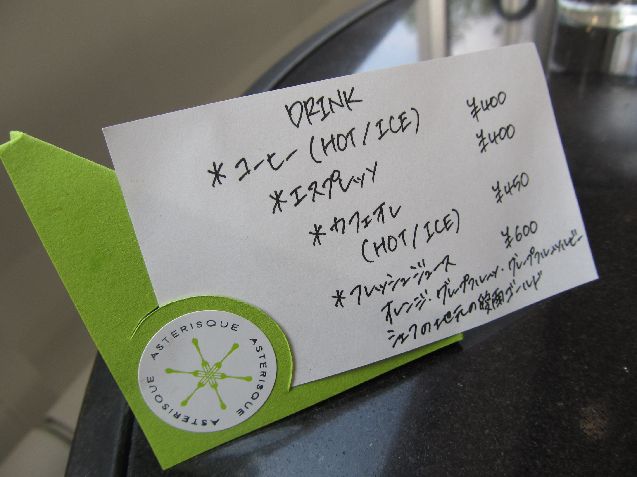 DRINK
*コーヒー (HOT/ICE) ¥400
*エスプレッソ ¥400
*カフェオレ
(HOT/ICE) ¥450
*フレッシュジュース ¥600
オレンジ・グレープフルーツ・グレープフルーツルビー
シェフの地元の ゴールド
ASTERISQUE ASTERISQUE ASTERISQUE